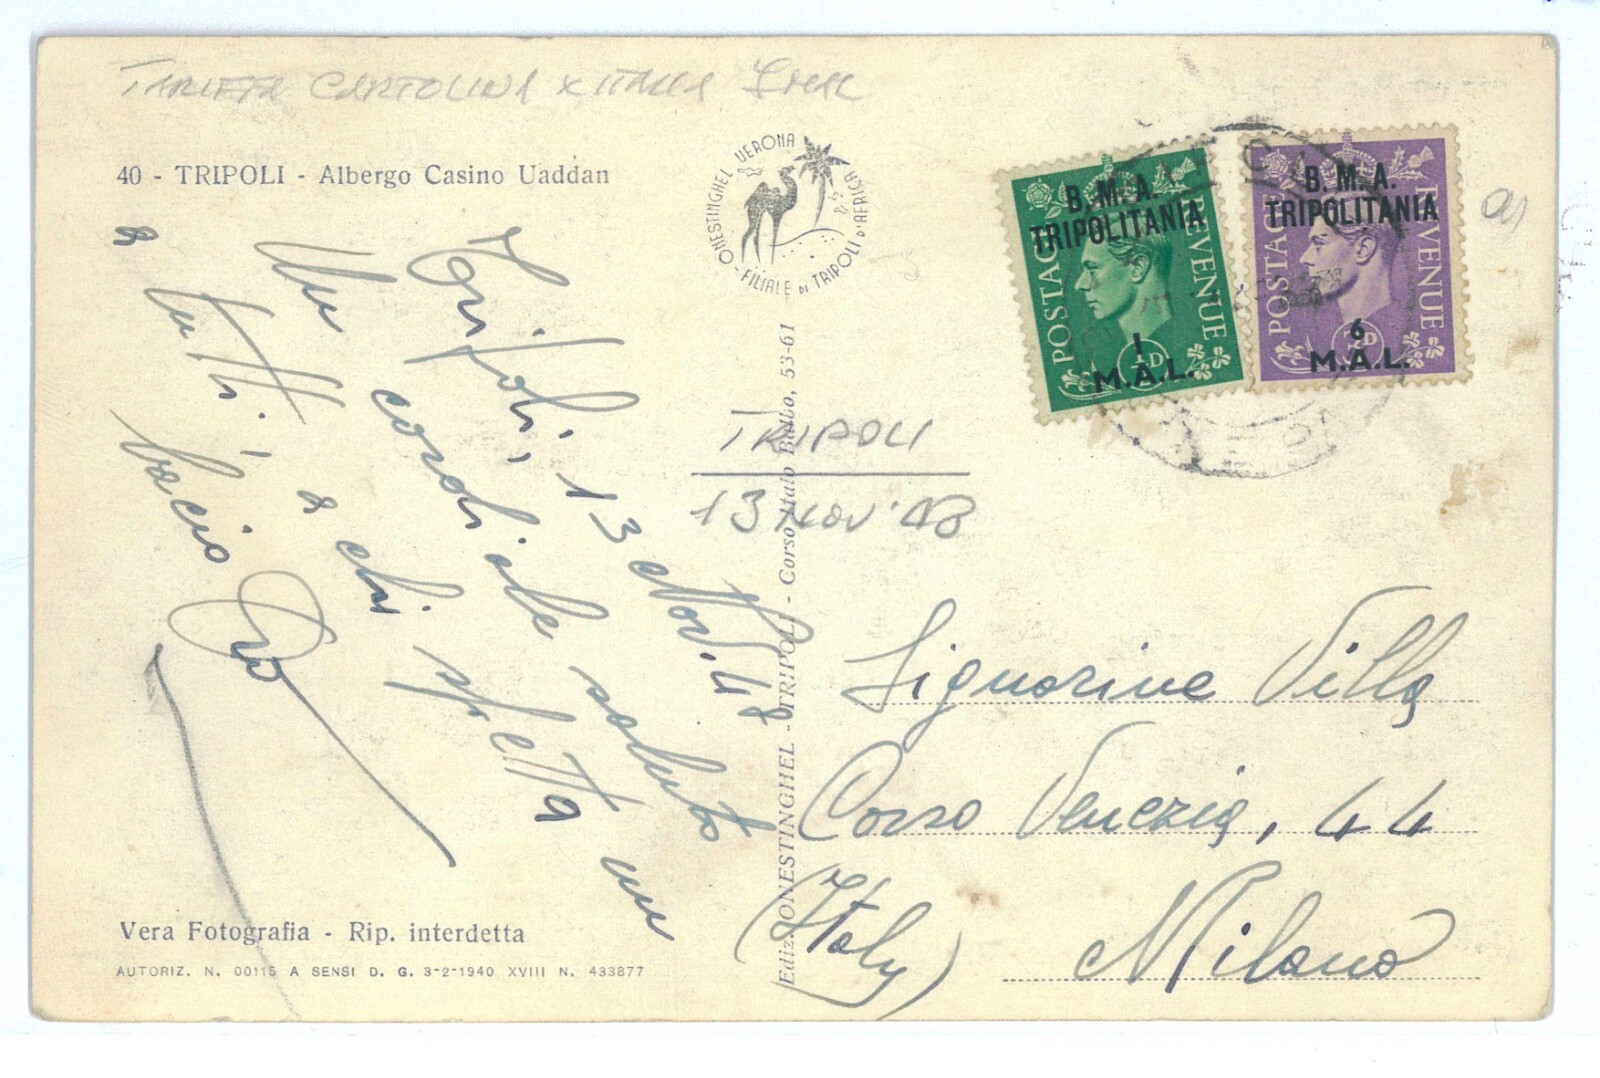 TARIFFA CARTOLINA X ITALIA
40 - TRIPOLI - Albergo Casino Uaddan
ONESTINGHEL VERONA
- FILIALE DI TRIPOLI D'AFRICA
B. M. A.
TRIPOLITANIA
POSTAGE REVENUE
1
M.A.L.
B. M. A.
TRIPOLITANIA
POSTAGE REVENUE
6
M.A.L.
Tripoli, 13 Nov. 48
Un cordiale saluto
a tutti, a chi spetta un
bacio
TRIPOLI
13 NOV. 48
Ediz. ONESTINGHEL - TRIPOLI - Corso Italo Balbo, 53-61
Signorine Villa
Corso Venezia, 44
Milano
(Italy)
Vera Fotografia - Rip. interdetta
AUTORIZ. N. 00115 A SENSI D. G. 3-2-1940 XVIII N. 433877